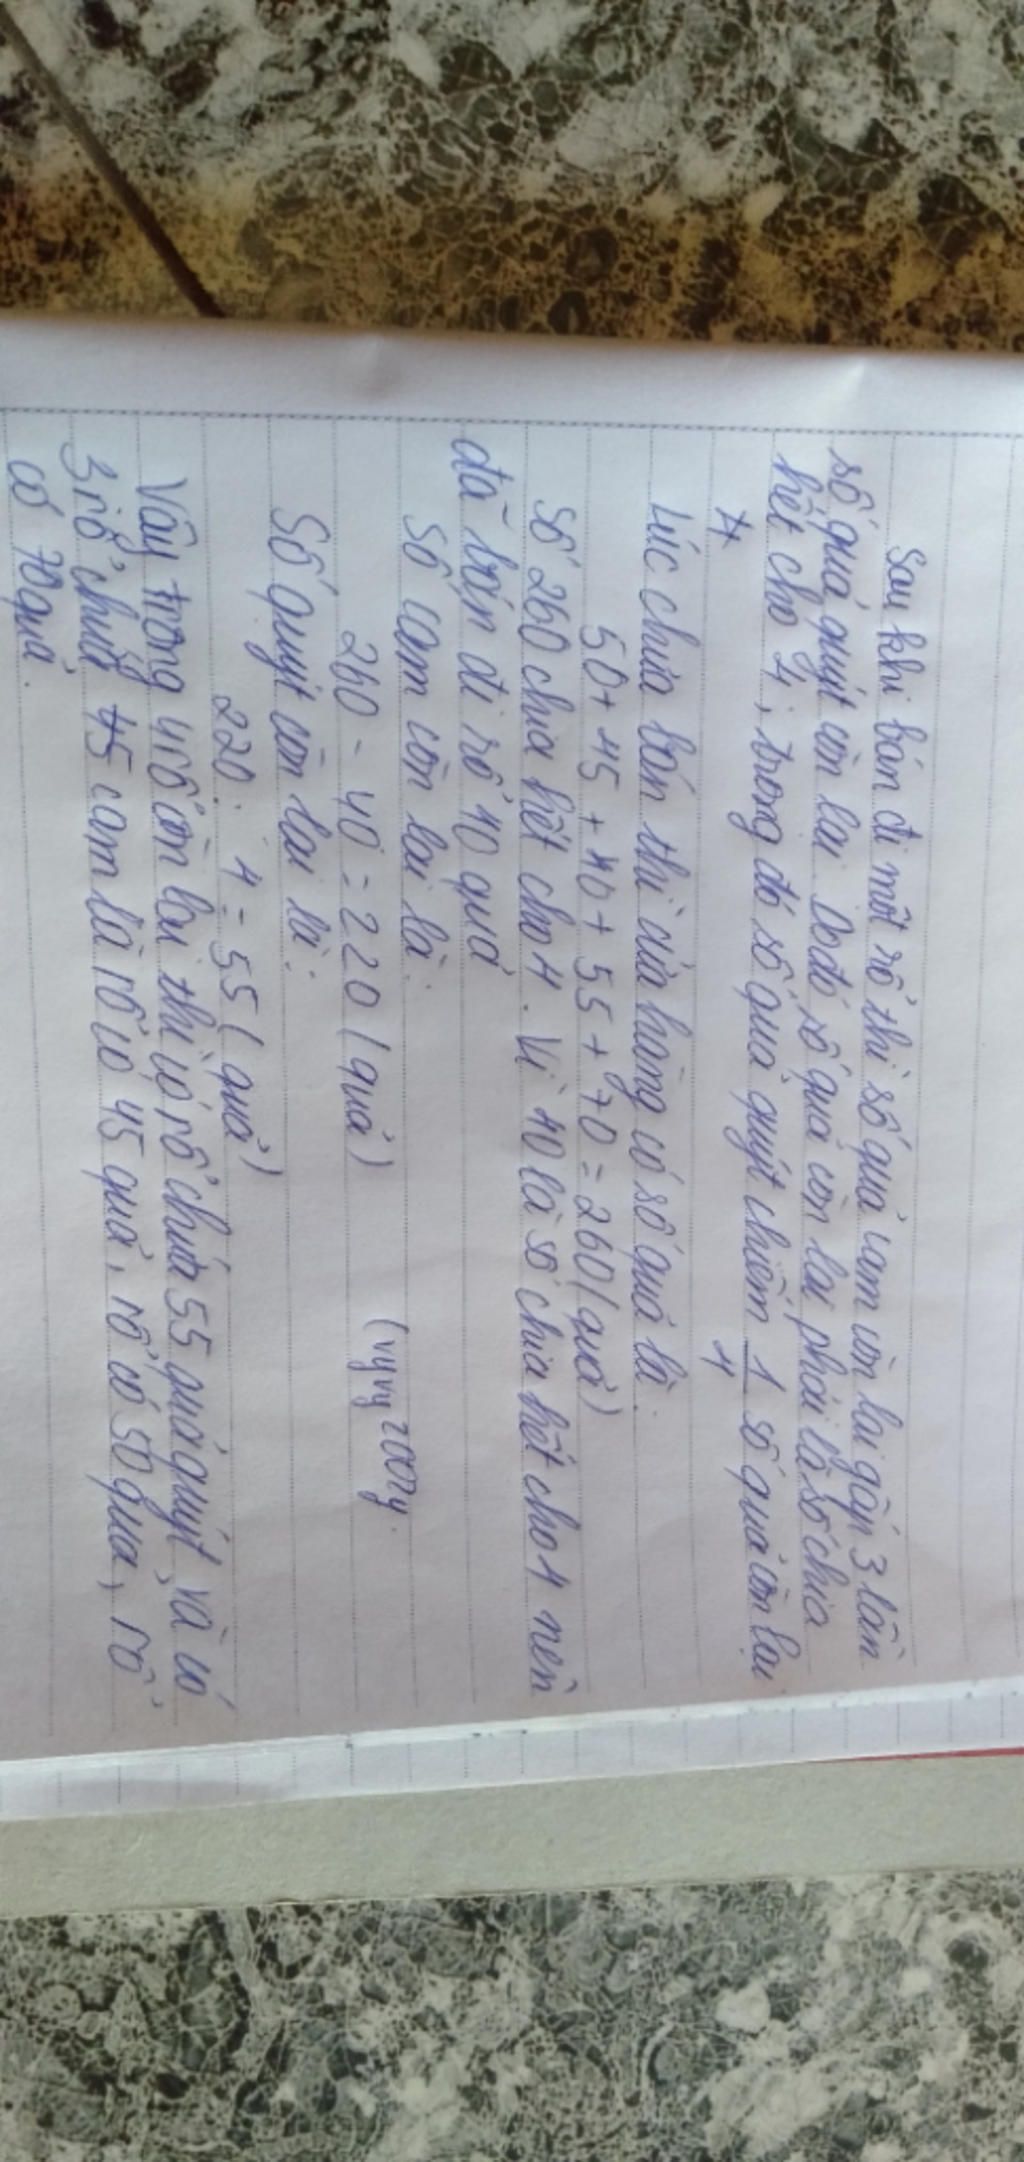 Sau khi bán đi một rổ thì số quả cam còn lại gấp 3 lần
số quả quýt còn lại. Do đó số quả còn lại phải là số chia
hết cho 4, trong đó số quả quýt chiếm 1/4 số quả còn lại
Lúc chưa bán thì cửa hàng có số quả là:
50 + 45 + 40 + 55 + 70 = 260 (quả)
Số 260 chia hết cho 4. Vì 40 là số chia hết cho 4 nên
đã bán đi rổ 40 quả
Số cam còn lại là:
260 - 40 = 220 (quả)
(vyvy2007y.
Số quýt còn lại là:
220 : 4 = 55 (quả)
Vậy trong 4 rổ còn lại thì có rổ chứa 55 quả quýt, và có
3 rổ chứa cam là rổ có 45 quả, rổ có 50 quả, rổ
có 70 quả.